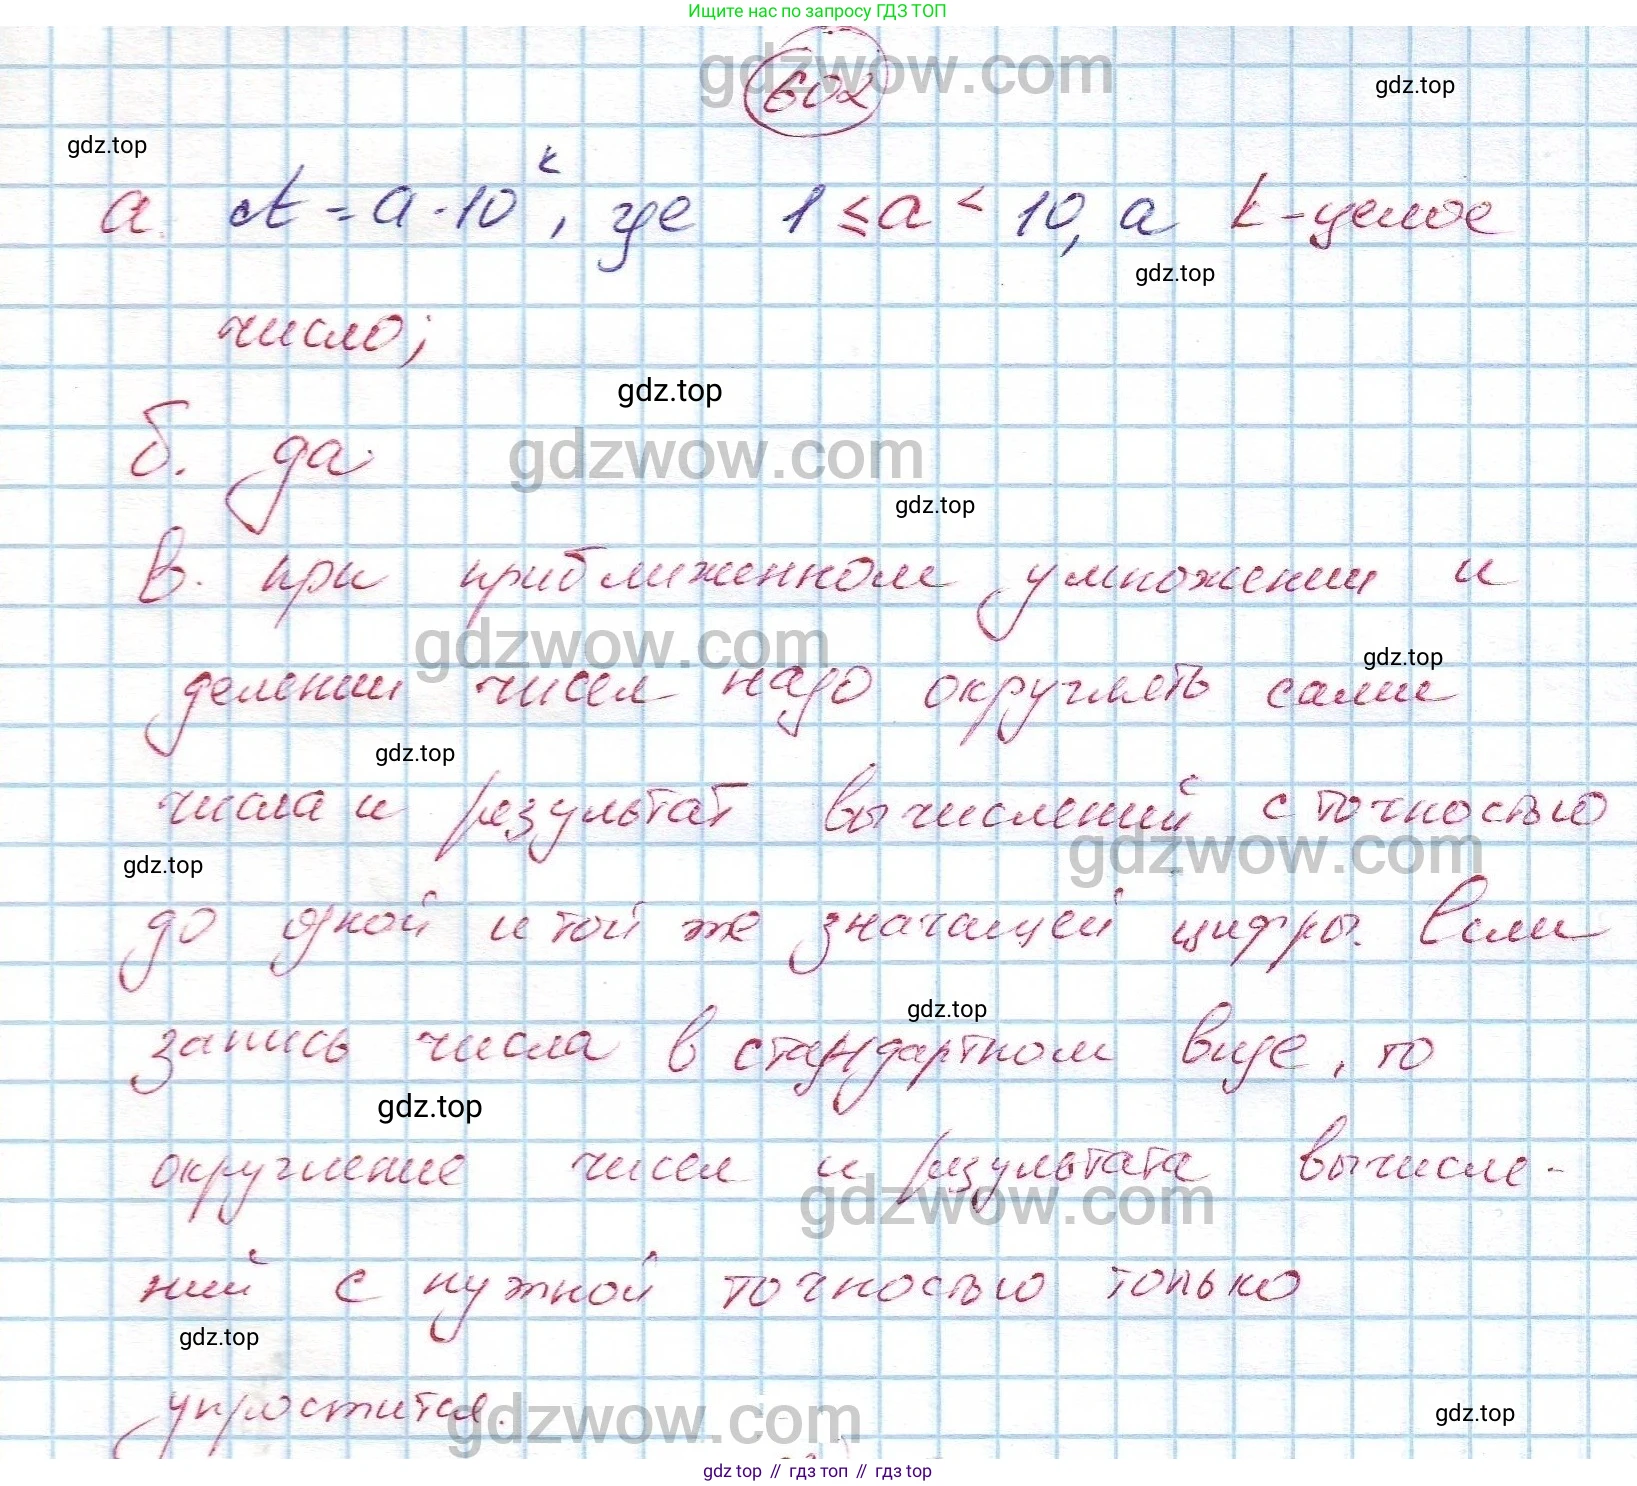 Ищите нас по запросу ГДЗ ТОП
gdzwow.com
602
gdz.top
gdz.top
а. A = a · 10^k, где 1 ≤ a < 10, а k - целое
gdz.top
число;
gdz.top
б. да.
gdzwow.com
gdz.top
в. при приближенном умножении и
gdzwow.com
gdz.top
делении чисел надо округлять сами
gdz.top
числа и результат вычислений с точностью
gdzwow.com
gdz.top
до одной и той же значащей цифры. Если
gdz.top
запись числа в стандартном виде, то
gdz.top
округление чисел и результата вычисле-
gdzwow.com
ний с нужной точностью только
gdz.top
упростится.
gdzwow.com
gdz.top
gdz top // гдз топ // гдз top